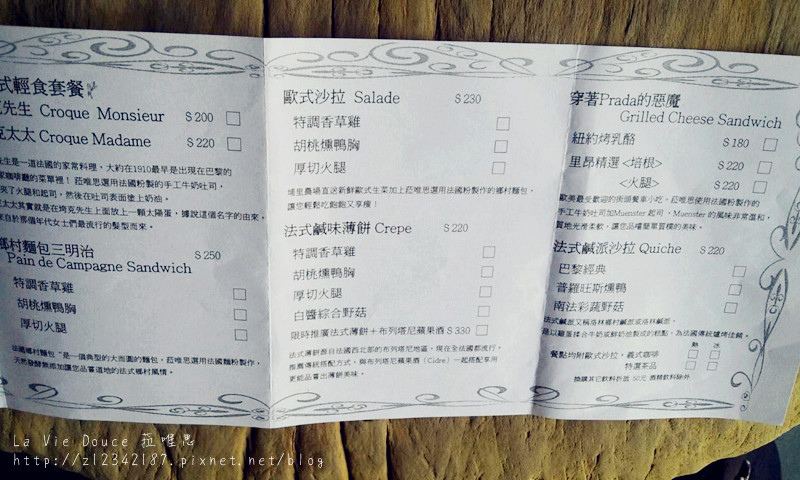 式輕食套餐
先生 Croque Monsieur $200
克太太 Croque Madame $220
先生是一道法國的家常料理，大約在1910最早是出現在巴黎的
家咖啡廳的菜單裡！菈唯思選用法國粉製的手工牛奶吐司，
夾了火腿和起司，然後在吐司表面塗上奶油。
克太太其實就是在垮克先生上面放上一顆太陽蛋，據說這個名字的由來，
來自於那個年代女士們最流行的髮型而來。
鄉村麵包三明治 $250
Pain de Campagne Sandwich
特調香草雞
胡桃燻鴨胸
厚切火腿
法國鄉村麵包"是一個典型的大而圓的麵包，菈唯思選用法國麵粉製作，
天然發酵無添加讓您品嘗道地的法式鄉村風情。
歐式沙拉 Salade $230
特調香草雞
胡桃燻鴨胸
厚切火腿
埔里農場直送新鮮歐式生菜加上菈唯思選用法國粉製作的鄉村麵包，
讓您輕鬆吃飽飽又享瘦！
法式鹹味薄餅 Crepe $220
特調香草雞
胡桃燻鴨胸
厚切火腿
白醬綜合野菇
限時推廣法式薄餅＋布列塔尼蘋果酒 $330
法式薄餅源自法國西北部的布列塔尼地區，現在全法國都流行，
推薦傳統搭配方式，與布列塔尼蘋果酒（Cidre）一起搭配享用
更能品嘗出薄餅美味。
穿著Prada的惡魔
Grilled Cheese Sandwich
紐約烤乳酪 $180
里昂精選 <培根> $220
<火腿> $220
歐美最受歡迎的街頭餐車小吃，菈唯思使用法國粉製的
手工牛奶吐司加Muenster起司，Muenster的風味非常溫和，
質地光滑柔軟，讓您品嚐簡單質樸的美味。
法式鹹派沙拉 Quiche $220
巴黎經典
普羅旺斯燻鴨
南法彩蔬野菇
法式鹹派又稱洛林鄉村鹹派或洛林鹹派，
是以雞蛋揉合牛奶或鮮奶油製成的糕點，為法國傳統爐烤佳餚。
熱 冰
餐點均附歐式沙拉，義式咖啡
特選茶品
換購其它飲料折抵 50元 酒精飲料除外
La Vie Douce 菈唯思
http://z12342187.pixnet.net/blog